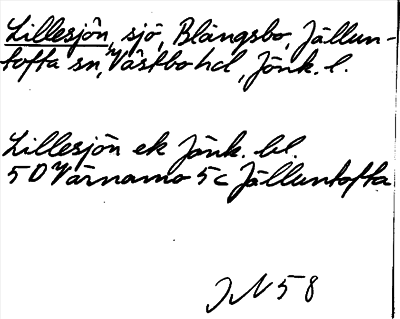 Lillesjön, sjö, Blängsbo, Jällun-
tofta sn, Västbo hd, Jönk. l.
Lillesjön ek Jönk. bl.
5 D Värnamo 5c Jälluntofta
JN 58